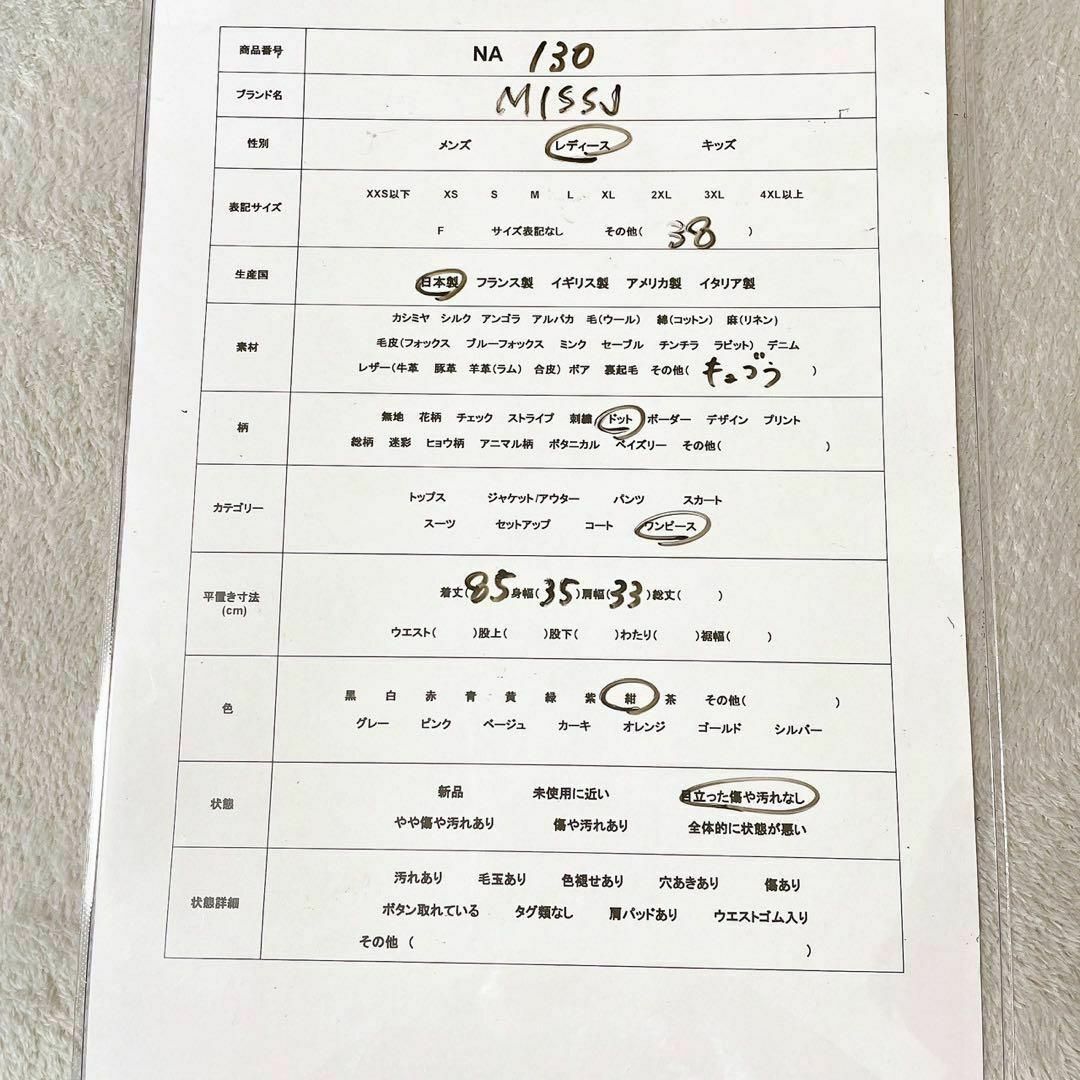 商品番号 NA 130
ブランド名 MISSJ
性別 メンズ レディース キッズ
表記サイズ XXS以下 XS S M L XL 2XL 3XL 4XL以上
F サイズ表記なし その他( 38 )
生産国 日本製 フランス製 イギリス製 アメリカ製 イタリア製
素材 カシミヤ シルク アンゴラ アルパカ 毛(ウール) 綿(コットン) 麻(リネン)
毛皮(フォックス ブルーフォックス ミンク セーブル チンチラ ラビット) デニム
レザー(牛革 豚革 羊革(ラム) 合皮) ボア 裏起毛 その他( キュプラ )
柄 無地 花柄 チェック ストライプ 刺繍 ドット ボーダー デザイン プリント
総柄 迷彩 ヒョウ柄 アニマル柄 ボタニカル ペイズリー その他( )
カテゴリー トップス ジャケット/アウター パンツ スカート
スーツ セットアップ コート ワンピース
平置き寸法 (cm) 着丈( 85 )身幅( 35 )肩幅( 33 )総丈( )
ウエスト( )股上( )股下( )わたり( )裾幅( )
色 黒 白 赤 青 黄 緑 紫 紺 茶 その他( )
グレー ピンク ベージュ カーキ オレンジ ゴールド シルバー
状態 新品 未使用に近い 目立った傷や汚れなし
やや傷や汚れあり 傷や汚れあり 全体的に状態が悪い
状態詳細 汚れあり 毛玉あり 色褪せあり 穴あきあり 傷あり
ボタン取れている タグ類なし 肩パッドあり ウエストゴム入り
その他 ( )